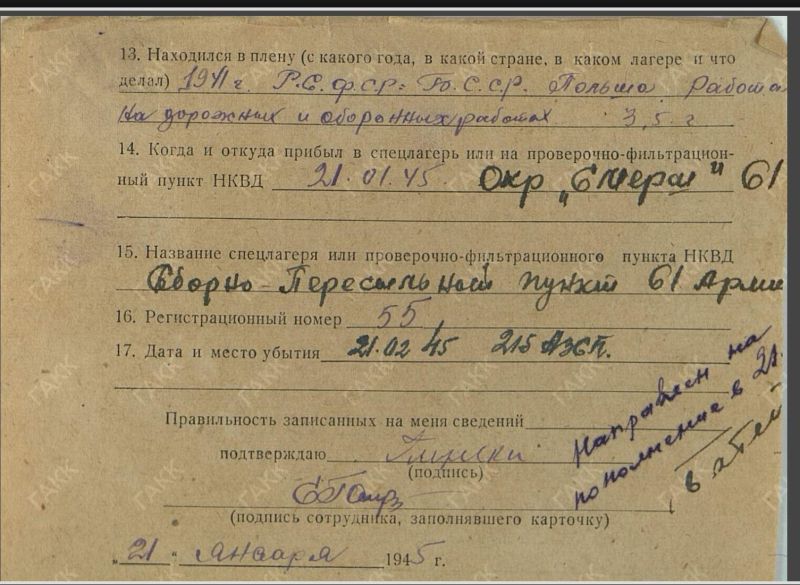 13. Находился в плену (с какого года, в какой стране, в каком лагере и что
делал) 1941 г. Р.С.Ф.С.Р. Б.С.С.Р. Польша Работа
на дорожных и оборонных работах 3,5 г
14. Когда и откуда прибыл в спецлагерь или на проверочно-фильтрацион-
ный пункт НКВД 21.01.45. Окр „Смерш" 61
15. Название спецлагеря или проверочно-фильтрационного пункта НКВД
Сборно-Пересыльной пункт 61 Арми
16. Регистрационный номер 55
17. Дата и место убытия 21.02 45 215 АЗСП.
Направлен на
пополнение в 21.
в
Правильность записанных на меня сведений
подтверждаю
(подпись)
(подпись сотрудника, заполнявшего карточку)
„21" Января 1945 г.
ГАКК